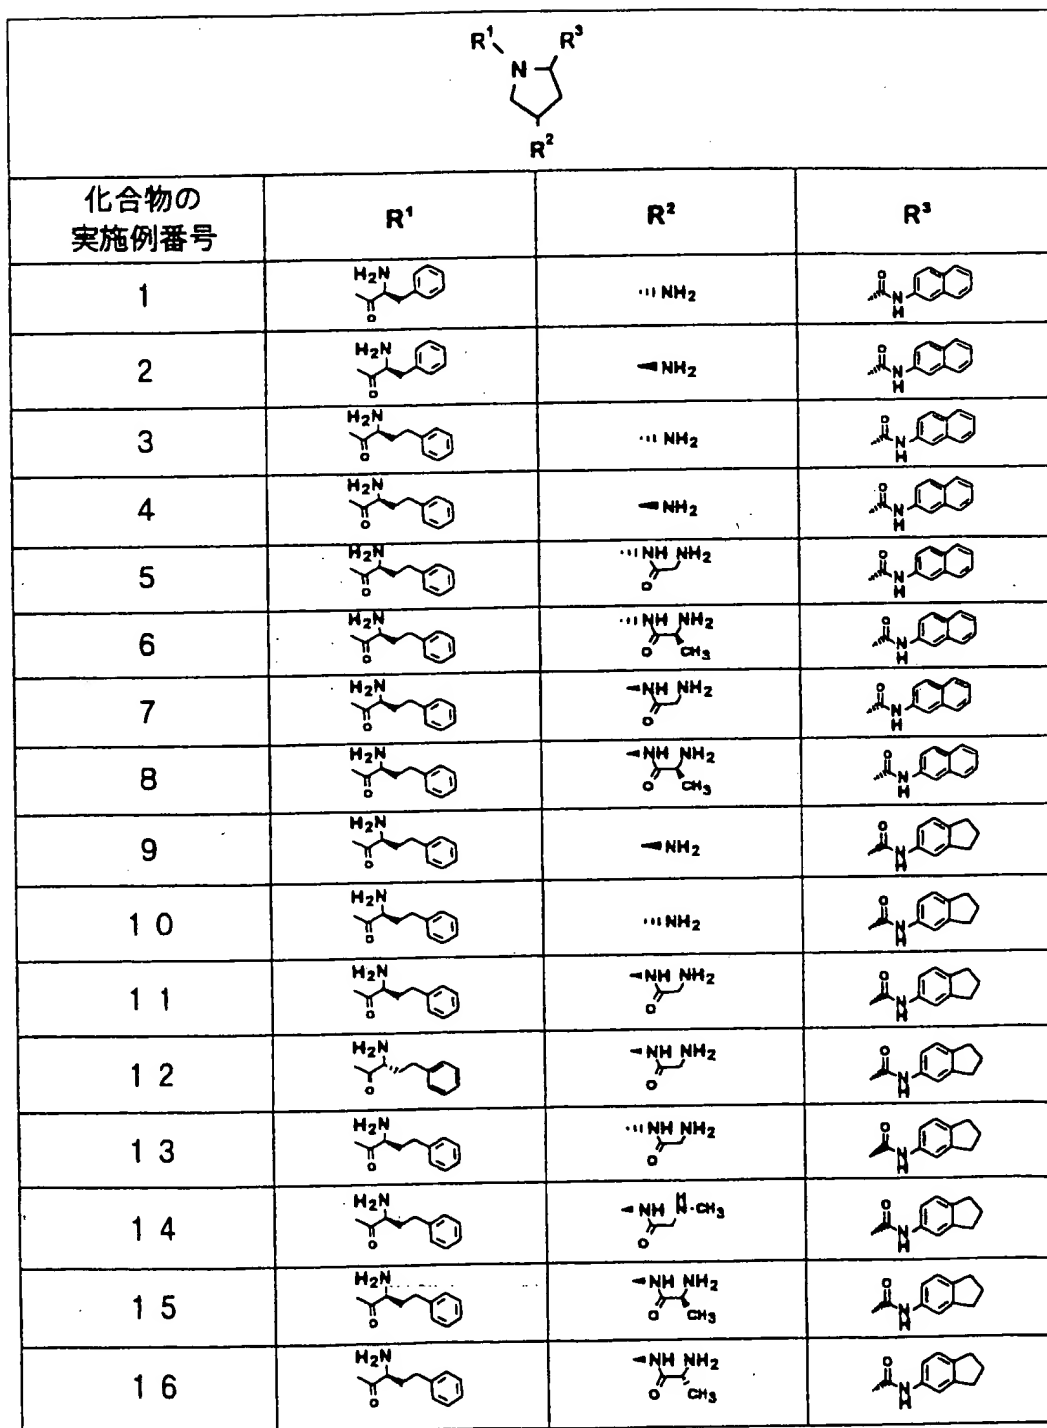 R¹ R³
N
R²
化合物の
実施例番号
R¹ R² R³
1 H₂N O NH₂ O N H
2 H₂N O NH₂ O N H
3 H₂N O NH₂ O N H
4 H₂N O NH₂ O N H
5 H₂N O NH NH₂ O O N H
6 H₂N O NH NH₂ O CH₃ O N H
7 H₂N O NH NH₂ O O N H
8 H₂N O NH NH₂ O CH₃ O N H
9 H₂N O NH₂ O N H
10 H₂N O NH₂ O N H
11 H₂N O NH NH₂ O O N H
12 H₂N O NH NH₂ O O N H
13 H₂N O NH NH₂ O O N H
14 H₂N O NH H N CH₃ O O N H
15 H₂N O NH NH₂ O CH₃ O N H
16 H₂N O NH NH₂ O CH₃ O N H